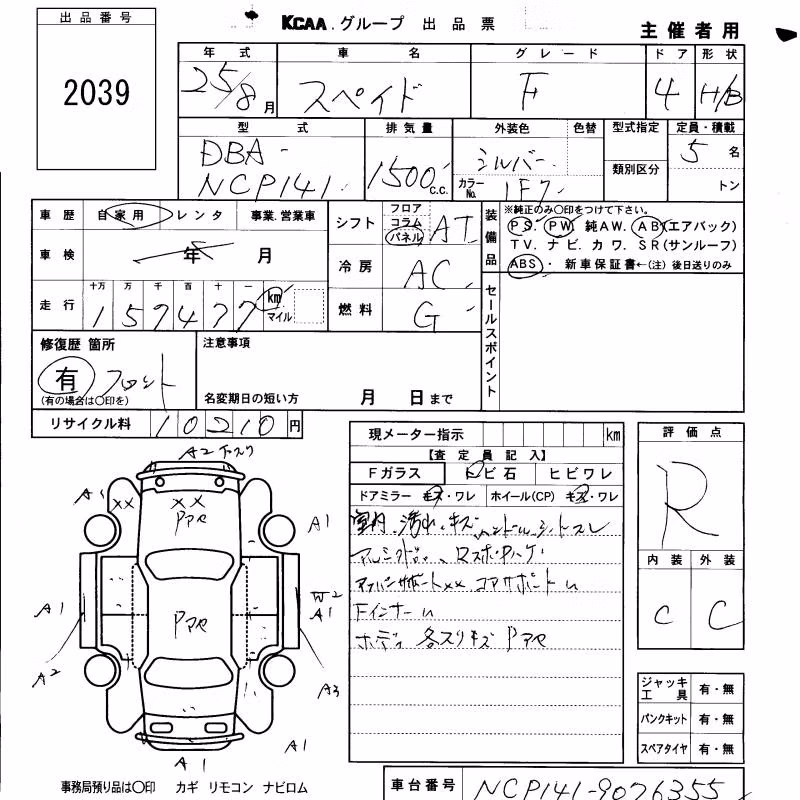 出品番号
2039
KCAA.グループ 出品票
主催者用
年式 車名 グレード ドア 形状
25/8月 スペイド F 4 H/B
型式 排気量 外装色 色替 型式指定 定員・積載
DBA-
NCP141
1500 c.c.
シルバー
カラーNo. 1F7
類別区分
5名
トン
車歴 自家用 レンタ 事業.営業車
車検 年 月
走行 十万 万 千 百 十 一
157477 km マイル
シフト フロア コラム パネル AT
冷房 AC
燃料 G
装備品
※純正のみ〇印をつけて下さい。
PS. PW. 純AW. AB(エアバック)
TV. ナビ. カワ. SR(サンルーフ)
ABS・ 新車保証書←(注) 後日送りのみ
セールスポイント
修復歴 箇所
有 フロント
(有の場合は〇印を)
注意事項
名変期日の短い方 月 日まで
リサイクル料 10210円
現メーター指示 km
【査定員記入】
Fガラス トビ石 ヒビワレ
ドアミラー キズ・ワレ ホイール(CP) キズ・ワレ
室内 汚れ、キズ ハンドル、シートスレ
コアサポート
Fインナー
ボディ 各スリキズ Pアセ
評価点
R
内装 外装
C C
A2 下スリ
A1 XX XX
Pアセ
A1
A1
W2
A1
Pアセ
A2
A3
A1
A1
ジャッキ工具 有・無
パンクキット 有・無
スペアタイヤ 有・無
事務局預り品は〇印 カギ リモコン ナビロム
車台番号 NCP141-9076355